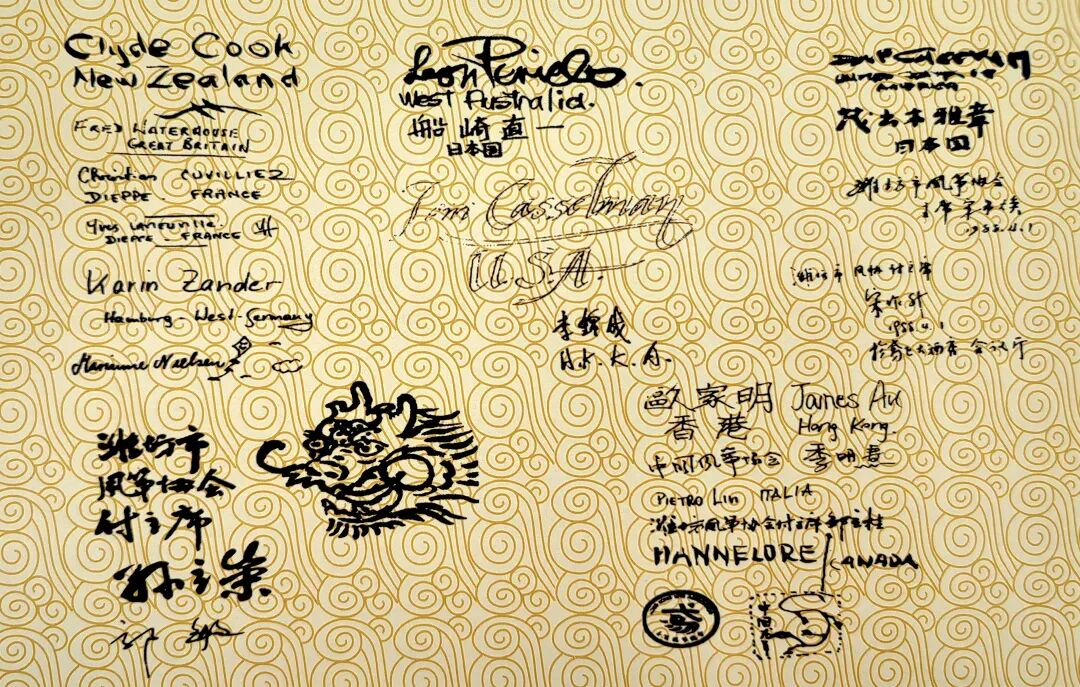 Clyde Cook
New Zealand
FRED WATERHOUSE
GREAT BRITAIN
Christian CUVILLIEZ
DIEPPE . FRANCE
Yves LANEUVILLE.
DIEPPE . FRANCE
Karin Zander
Hamburg - West-Germany
Marianne Nielsen
潍坊市
风筝协会
付主席
孙立荣
West Australia.
船崎直一
日本国
Casselman
U.S.A.
李锦成
H.K.K.A.
AMERICA
茂出木雅章
日本国
潍坊市风筝协会
主席
1988.4.1
潍坊市风协付主席
1988.4.1
歐家明 James Au
香港 Hong Kong.
中国风筝协会 李明君
PIETRO LIN ITALIA
潍坊风筝协会付主席
HANNELORE
CANADA